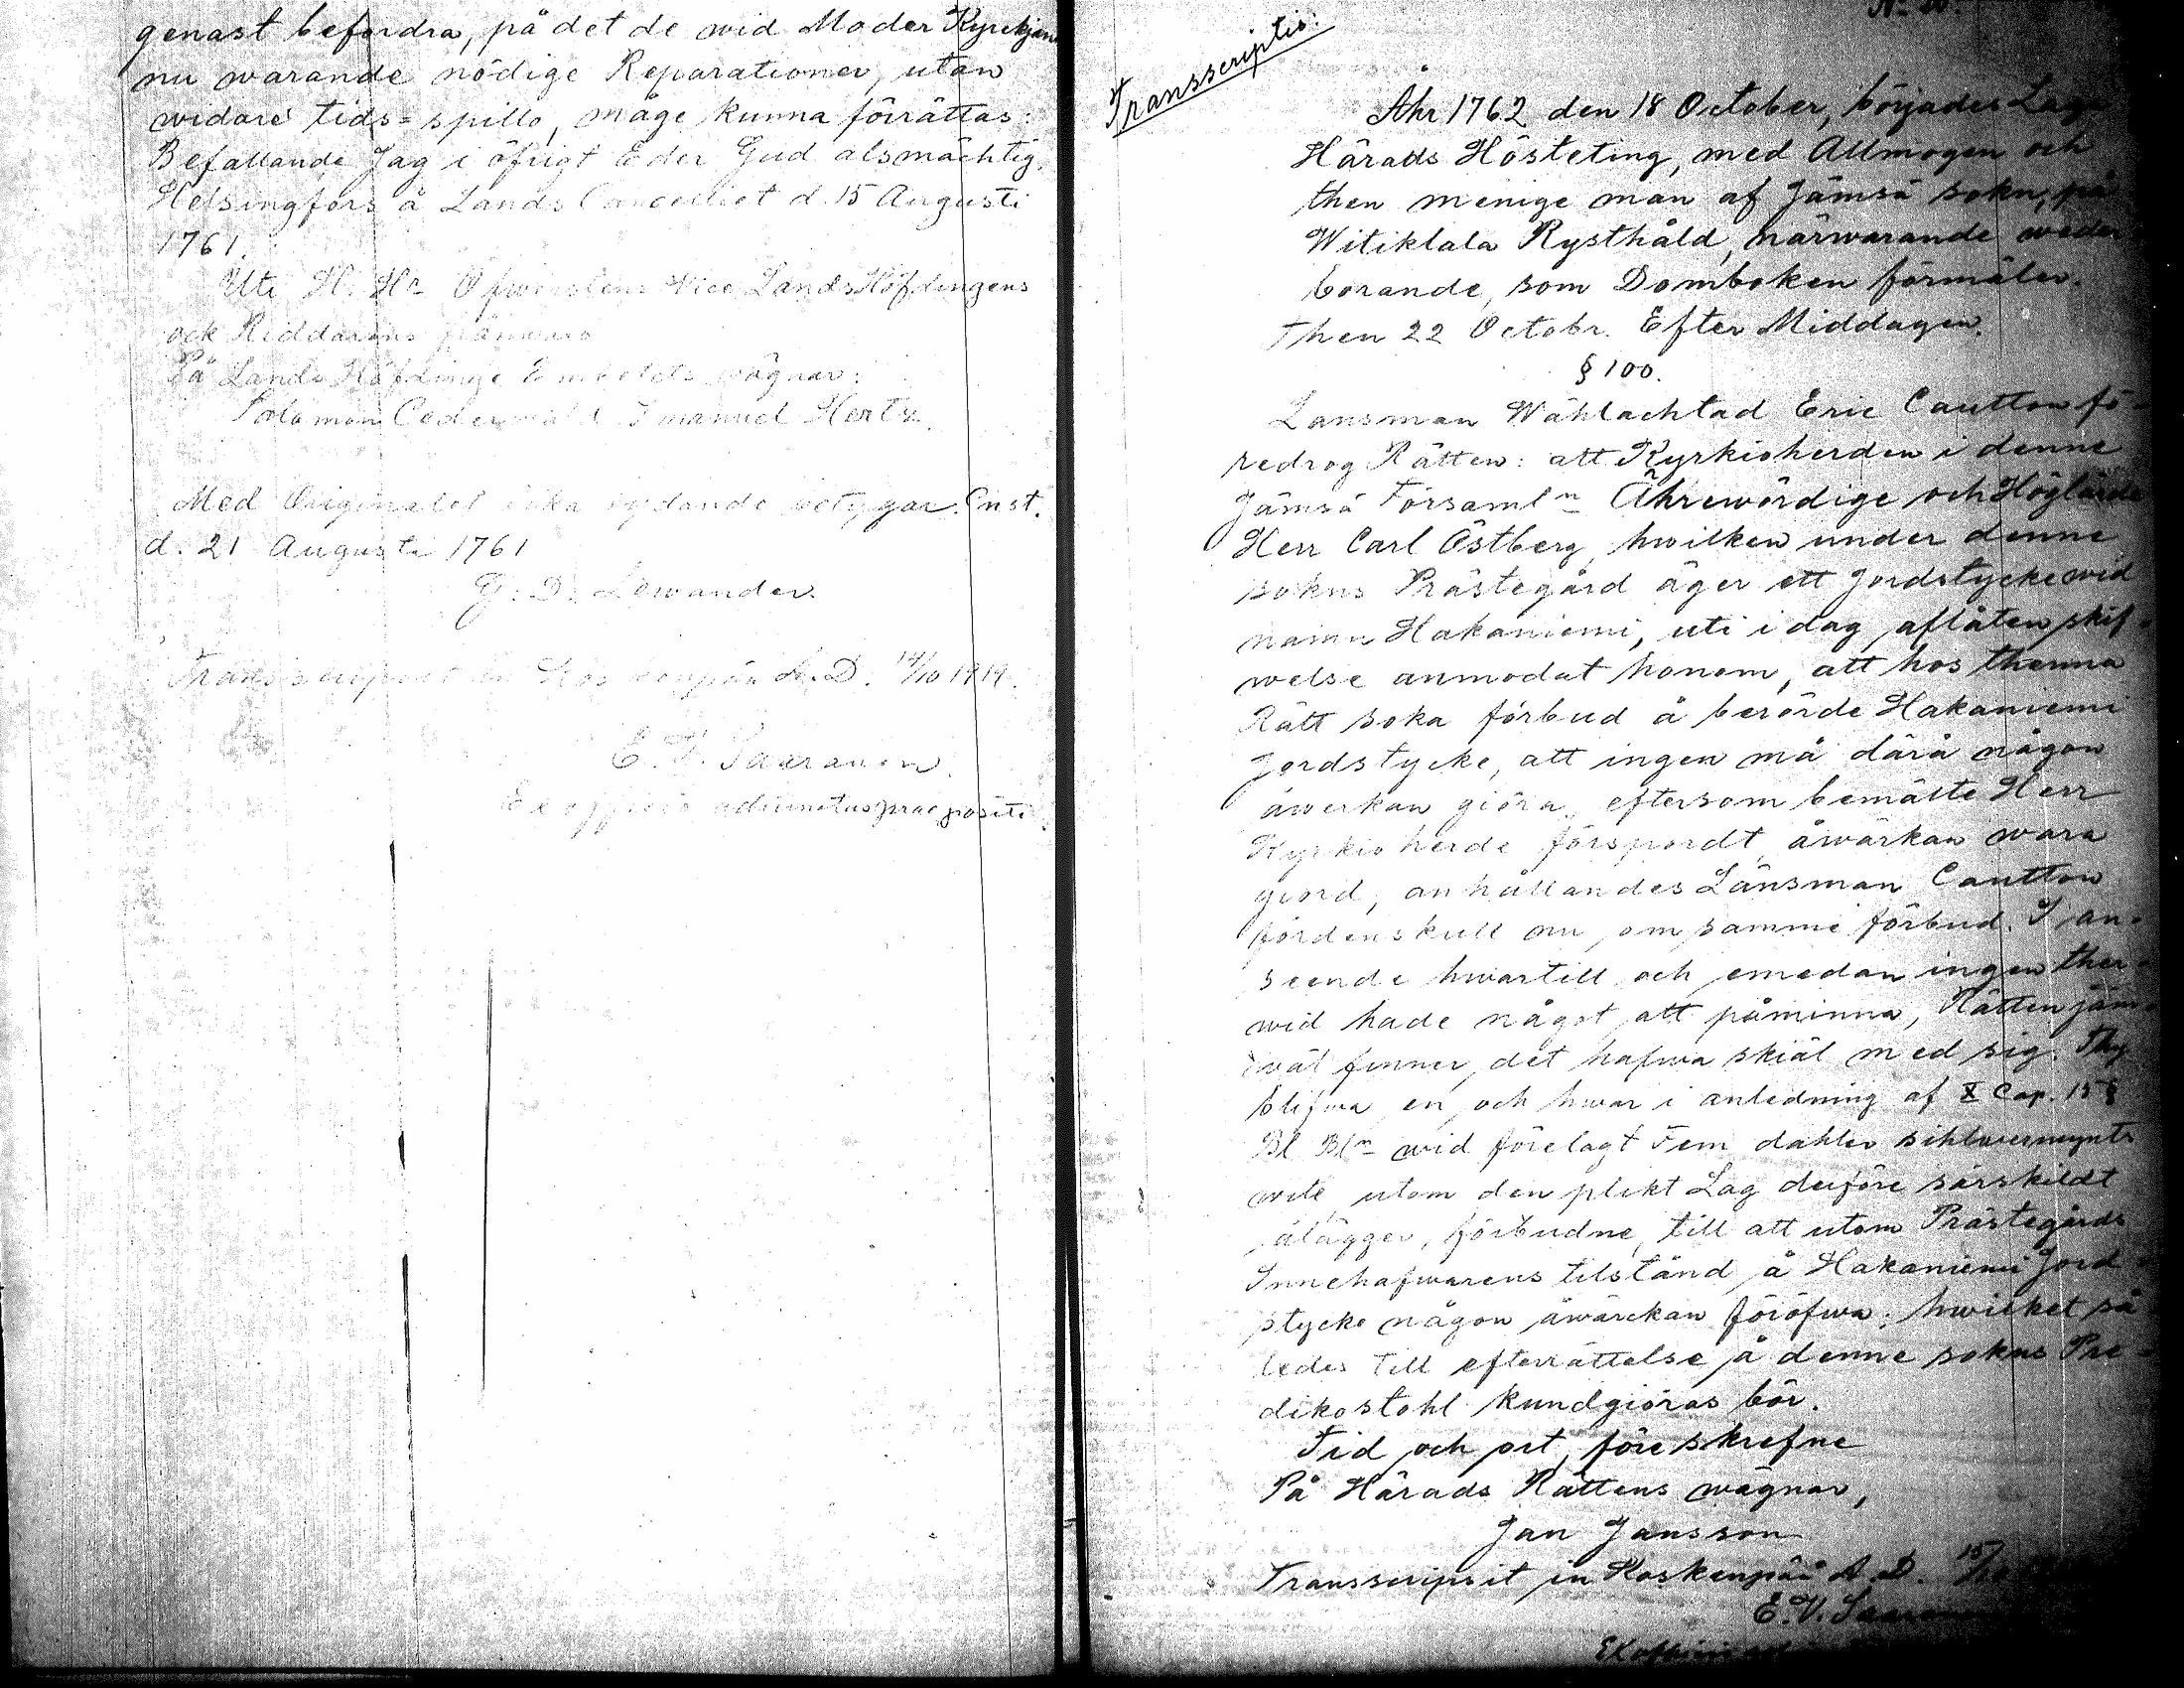 genast befordra, på det de wid Moder Kyrckjan
nu warande nödige Reparationer, utan
widare tids=spillo, måge kunna förrättas:
Befallande Jag i öfrigt Eder Gud alsmächtig.
Helsingfors å Lands Cancelliet d. 15 Augusti
1761.
Uti H. Hr Öfwerstens Vice Lands Höfdingens
och Riddarens frånwaro
På Lands Höfdinge Embetets wägnar:
Salomon Cederwald Imanuel Hertz.
Med Originalet lika lydande betygar. Cnst.
d. 21 Augusti 1761
G. D. Lewander.
Transscripsit in Koskenpää A. D. 14/10 1919.
E. V. Saaranen.
Ex officio adiunctus praepositi.
Transscriptio:
Åhr 1762 den 18 October, börjades Laga
Härads Hösteting, med Allmogen och
then menige man af Jämsä sokn, på
Witiklala Rysthåld, närwarande weder-
börande, som Domboken förmäler.
Then 22 Octobr. Efter Middagen.
§ 100.
Länsman Wählachtad Eric Cautton fö-
redrog Rätten: att Kyrkioherden i denne
Jämsä Församln Ährewördige och Höglärde
Herr Carl Östberg, hwilken under denne
sokns Prästegård äger ett Jordstycke wid
namn Hakaniemi, uti i dag aflåten skif-
welse anmodat honom, att hos thenna
Rätt söka förbud å berörde Hakaniemi
Jordstycke, att ingen må därå någon
åwerkan giöra, eftersom bemälte Herr
Kyrkioherde förspordt åwärkan wara
giord, anhållandes Länsman Cautton
fördenskull nu, om samme förbud. I an-
seende hwartill och emedan ingen ther-
wid hade något att påminna, Rätten jäm-
wäl finner det hafwa skiäl med sig. Thy
blifwa en och hwar i anledning af X Cap. 15 §
Bl Bln wid förelagt Fem dahler silfwermynts
wite, utom den plikt Lag derföre särskildt
ålägger, förbudne, till att utom Prästegårds
Innehafwarens tilstånd å Hakaniemi Jord-
stycke någon åwärckan föröfwa; hwilket så-
ledes till efterrättelse å denne sokns Pre-
dikostohl kundgiöras bör.
Tid och ort, föreskrefne
På Härads Rättens wägnar,
Jan Jansson
Transscripsit in Koskenpää A. D. 15/10
E. V. Saaranen
Ex officio